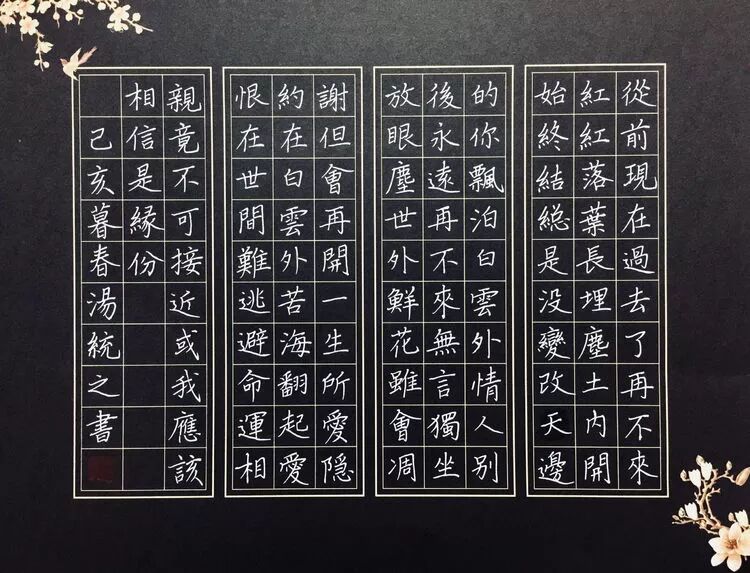 從前現在過去了再不來
紅紅落葉長埋塵土内開
始終結緫是没變改天邊
的你飄泊白雲外情人别
後永遠再不來無言獨坐
放眼塵世外鮮花雖會凋
謝但會再開一生所愛隐
約在白雲外苦海翻起愛
恨在世間難逃避命運相
親竟不可接近或我應該
相信是緣份
己亥暮春湯統之書